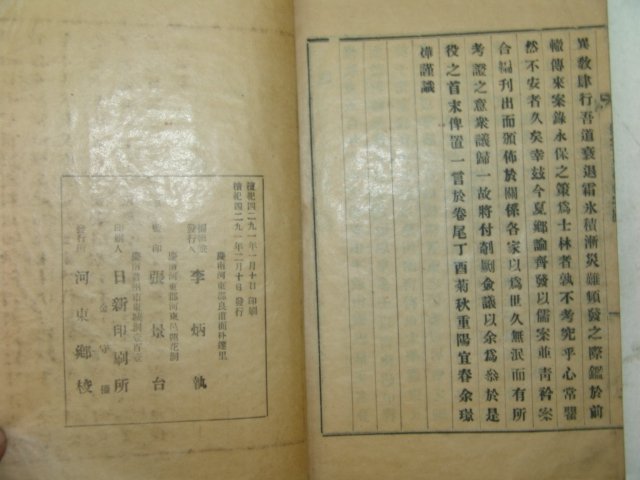 異敎肆行吾道衰退霜氷積漸災難頻發之際鑑於前
轍傳來案錄永保之策爲士林者孰不考究乎心常瞿
然不安者久矣幸玆今夏鄕論齊發以儒案並靑衿案
合編刊出而頒佈於關係各家以爲世久無泯而有所
考證之意衆議歸一故將付剞劂僉議以余爲參於是
役之首末俾置一言於卷尾丁酉菊秋重陽宜春余璟
燁謹識
檀紀四二九一年一月十日印刷
檀紀四二九一年二月十日發行
慶南河東郡良甫面朴達里
發行人 李炳執
慶南河東郡河東邑
印 張景台
印刷人 日新印刷所
發行所 河東鄕校